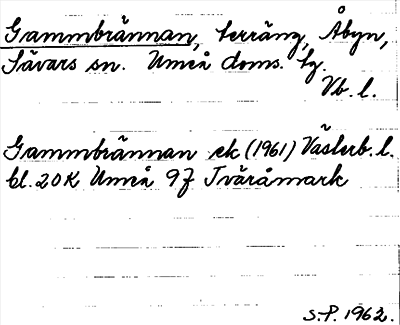 Gammbrännan, terräng, Åbyn,
Sävars sn. Umeå doms. tg.
Vb. l.
Gammbrännan ek (1961) Västerb. l.
bl. 20K Umeå 9f Tväråmark
S.P. 1962.